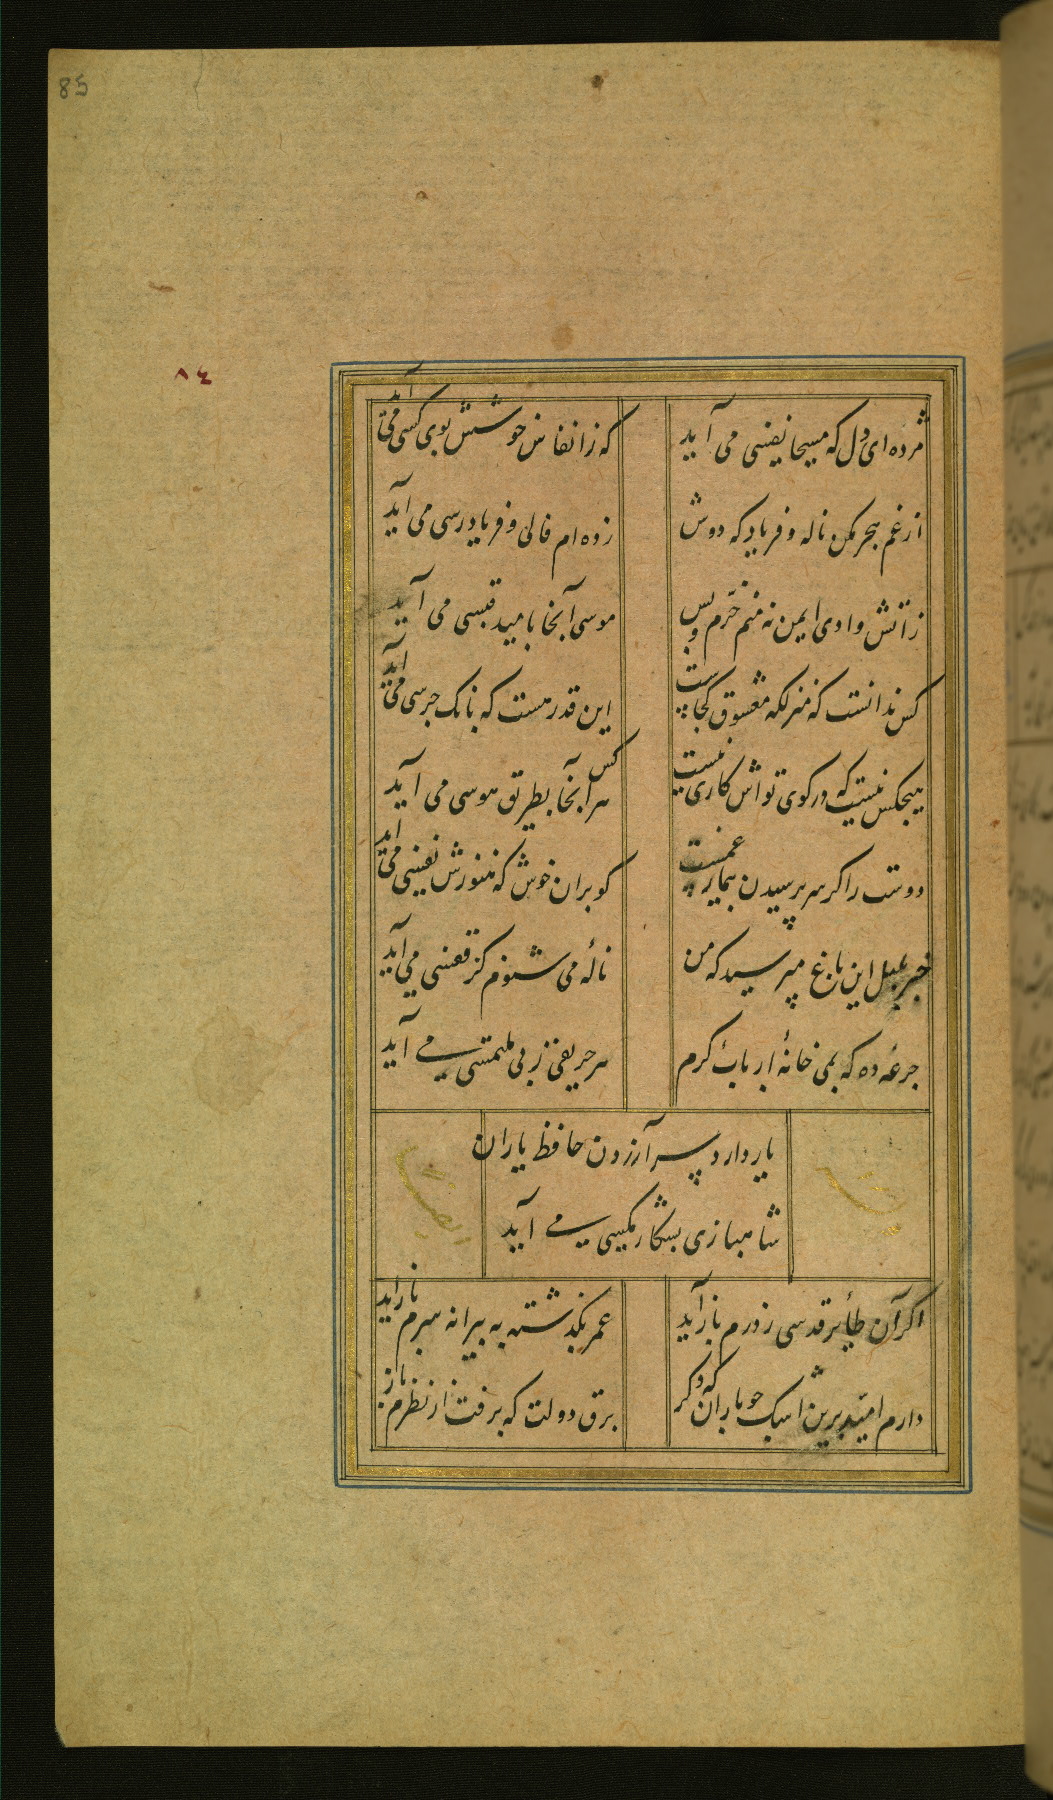 85
٨٤
مژده ای دل که مسیحا نفسی می آید
که ز انفاس خوشش بوی کسی می آید
از غم هجر مکن ناله و فریاد که دوش
زده ام فالی و فریادرسی می آید
زآتش وادی ایمن نه منم خرّم و بس
موسی آنجا بامید قبسی می آید
کس ندانست که منزلکه معشوق کجاست
این قدر هست که بانک جرسی می آید
هیچکس نیست که در کوی تواش کاری نیست
هر کس آنجا بطریق هوسی می آید
دوست را کر سر پرسیدن بیمار غمست
کو بران خوش که هنوزش نفسی می آید
خبر بلبل این باغ مپرسید که من
نالهٔ می شنوم کز قفسی می آید
جرعهٔ ده که بمی خانهٔ ارباب کرم
هر حریفی ز پی ملتمسی می آید
یار دارد سر آزردن حافظ یاران
شاهبازی بشکار مکسی می آید
اکر آن طأیر قدسی ز درم باز آید
عمر بکذشته به پیرانه سرم باز آید
دارم امیّد برین اشک چو باران که دکر
برق دولت که برفت از نظرم باز